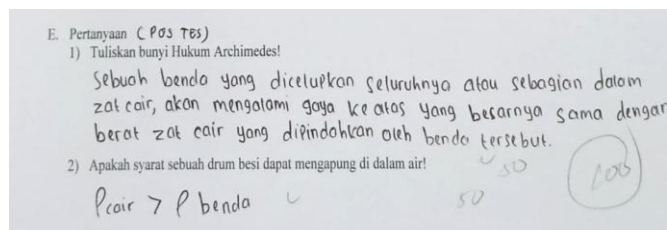 E. Pertanyaan (POS TES)
1) Tuliskan bunyi Hukum Archimedes!
Sebuah benda yang dicelupkan seluruhnya atau sebagian dalam
zat cair, akan mengalami gaya ke atas yang besarnya sama dengan
berat zat cair yang dipindahkan oleh benda tersebut.
50
2) Apakah syarat sebuah drum besi dapat mengapung di dalam air!
100
ρcair > ρ benda
50